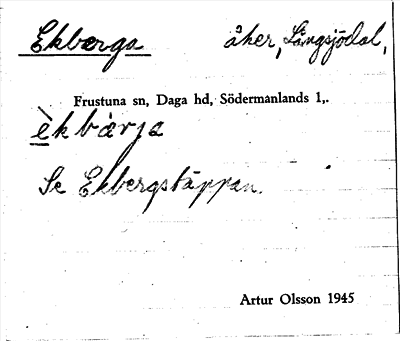 Ekberga åker, Långsjödal,
Frustuna sn, Daga hd, Södermanlands l,.
èkbärja
Se Ekbergstäppan.
Artur Olsson 1945